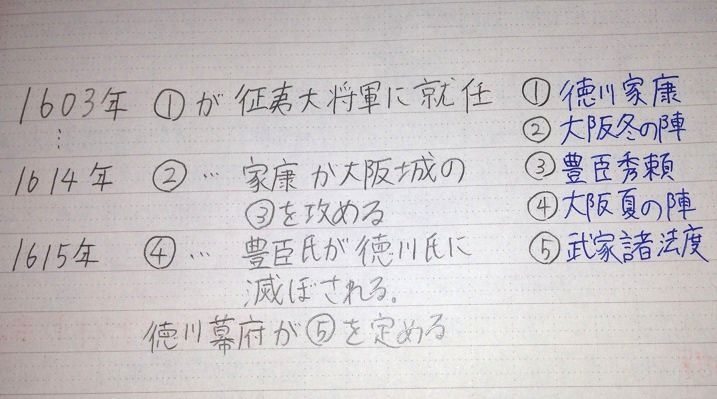 1603年 ①が征夷大将軍に就任
⋮
1614年 ②… 家康が大阪城の
③を攻める
1615年 ④… 豊臣氏が徳川氏に
滅ぼされる.
徳川幕府が⑤を定める
①徳川家康
②大阪冬の陣
③豊臣秀頼
④大阪夏の陣
⑤武家諸法度